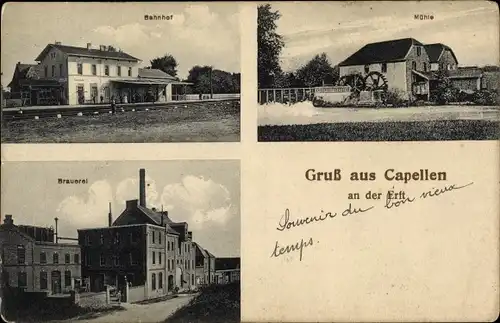 Bahnhof
Mühle
Brauerei
Gruß aus Capellen
an der Erft
Souvenir du bon vieux
temps.